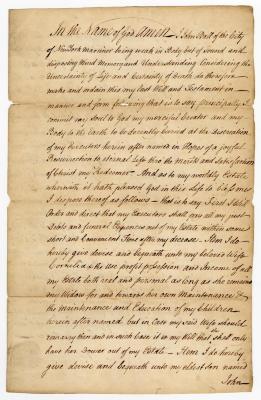 In the Name of God Amen I John Bott of the City
of New York marriner being weak in Body but of sound and
disposing Mind Memory and Understanding Considering the
Uncertainty of Life and Certainty of death do therefore
make and ordain this my Last Will and Testament in
manner and form following that is to say principaly I
commit my Soul to God my merciful Creator and my
Body to the Earth to be decently buried at the discretion
of my Executors herein after named in Hopes of a joyful
Resurrection to eternal Life thro the Merits and Satisfaction
of Christ my Redeemer And as to my worldly Estate
wherewith it hath pleased God in this Life to bless me
I despose thereof as follows – that is to say First I will
Order and direct that my Executors shall pay all my just
Debts and funeral Expences out of my Estate within some
short and Convenient Time after my decease – Item I do
hereby give devise and bequeath unto my beloved Wife
Cornelia the use profit possession and Income of all
my Estate both real and personal as long as she remains
my Widow for and towards her own Maintenance &
the maintenance and Education of my Children
herein after named but in Case my said Wife should
remarry then and in such Case it is my Will that she shall only
have her Dower out of my Estate – Item I do hereby
give devise and bequeath unto my eldest Son named
John